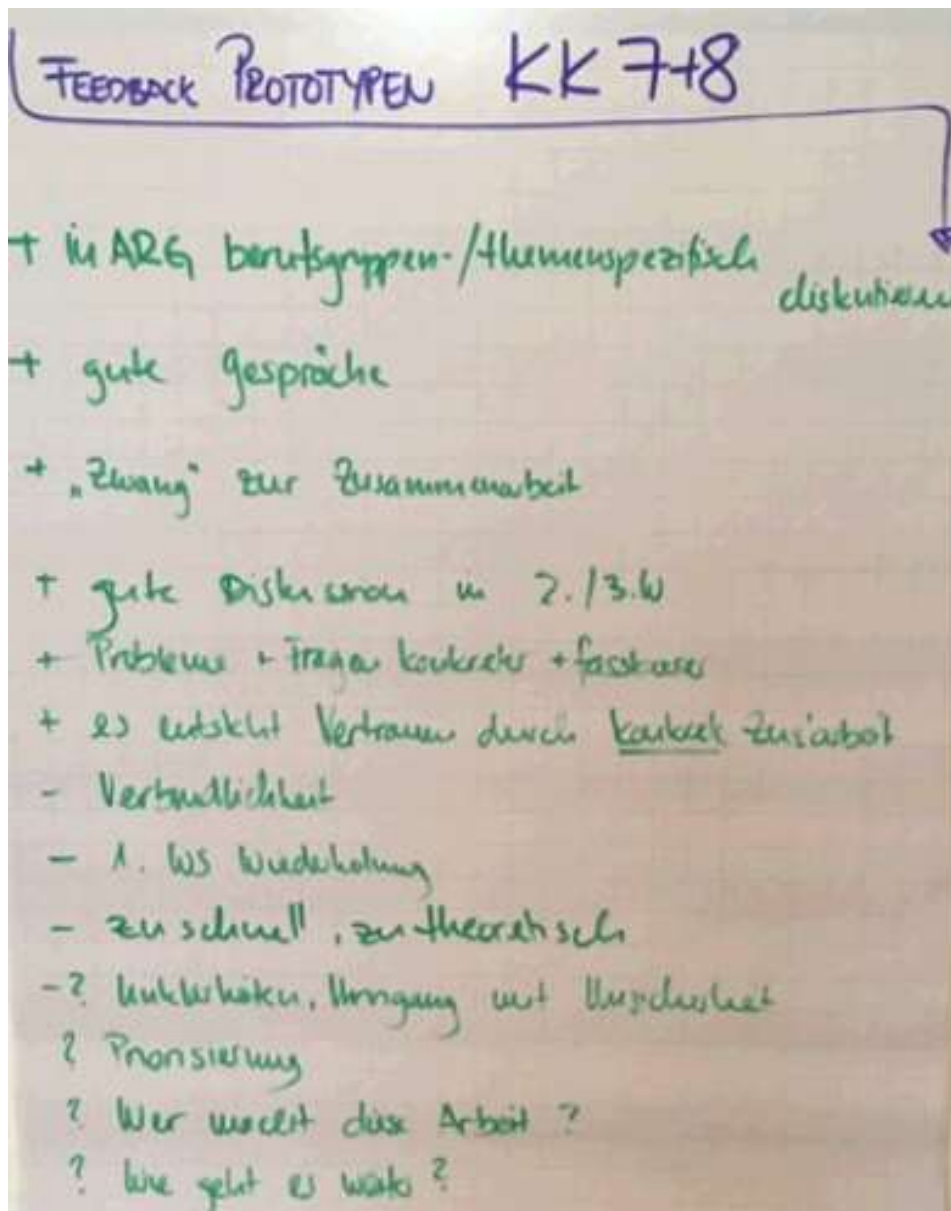 FEEDBACK PROTOTYPEN KK 7+8
+ in ARG berufsgruppen-/themenspezifisch
diskutieren
+ gute Gespräche
+ „Zwang" zur Zusammenarbeit
+ gute Diskussion in 2./3.W
+ Probleme + Fragen konkreter + fassbarer
+ es entsteht Vertrauen durch konkret Zus'arbeit
- Verbindlichkeit
- 1. WS Wiederholung
- zu schnell, zu theoretisch
-? Unklarheiten, Umgang mit Unsicherheit
? Priorisierung
? Wer macht diese Arbeit ?
? Wie geht es weiter ?